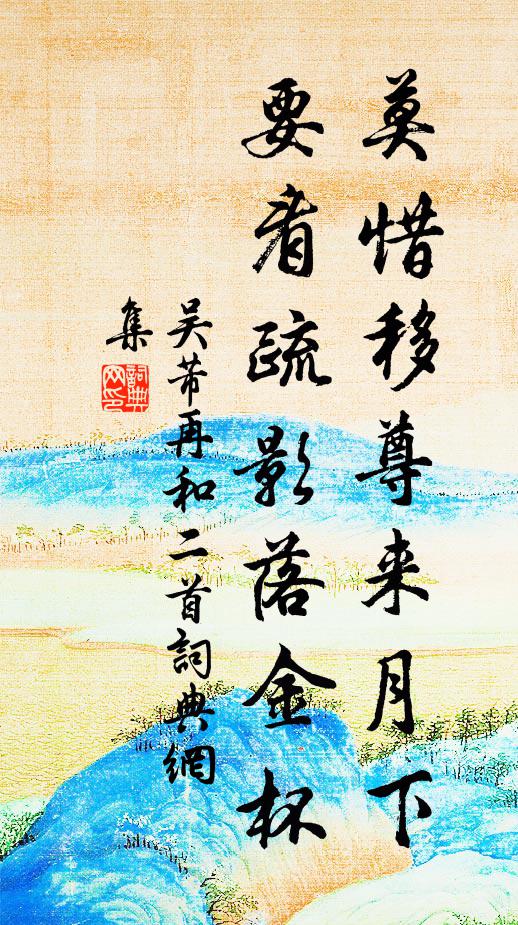 莫惜移尊来月下
要看疏影落金杯
吴芾再和二首詞典網
集
詞典
网印